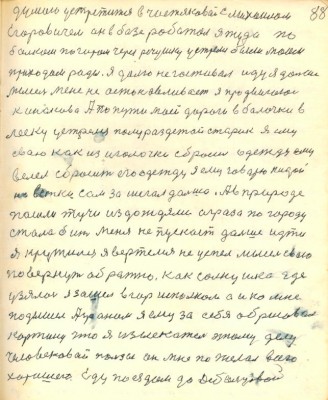 88
думаю устретится в частяковой с михаилом
Егоровичем он в базе работал я туда по
балкам погорам через речушку устрели были моим
приходам рады. Я долго не гаставал иду я дальше
милел мене не астановливает я продвигаюс
А по пути моей дороги в балочки в
леску устрелил полураздетой старик я ему
сваю как из иголочки сбросил одежду ему
велел сбросить его одежду я ему говорю кидой
на ветки сам зашагал дальше. А в природе
пошли тучи из дождями сразо по городу
стала бить меня не пускает дальше идти
я крутился я вертелся не успел
повернуть обратно, как солнушка где
узялос я зашел в гор исполком а ко мне
подашли Аураном я ему за себя обрисовал
картину што я извлекател этому делу
человековой ползы он мне пожелал всего
хорошего Еду поездом до Дебальцевой